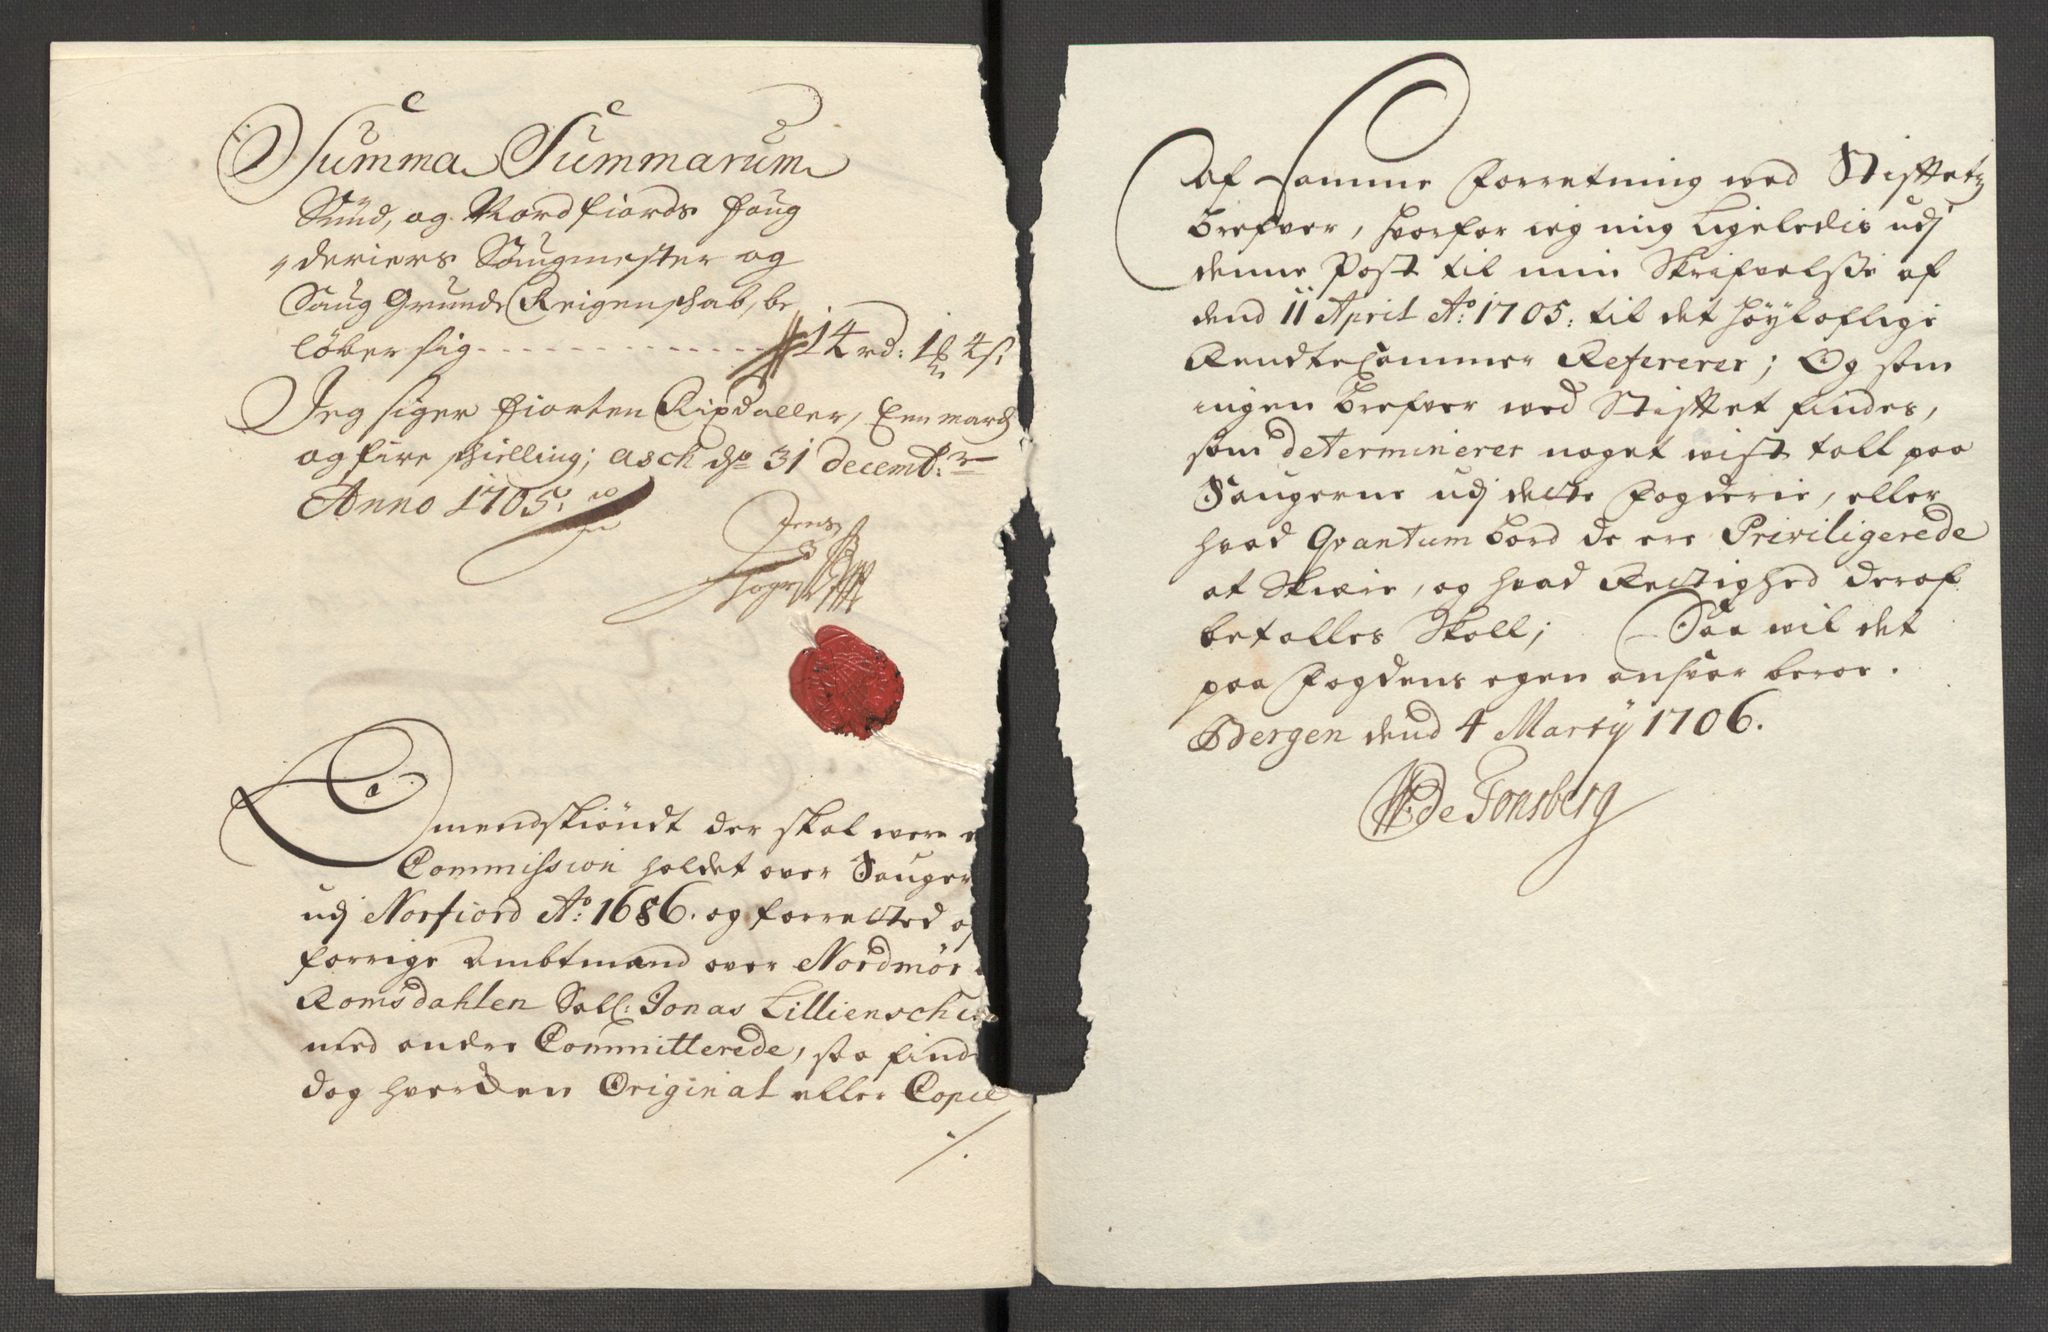 Summa Summarum
Sund, og Nordfiords foug
deriers Saugmester og
Saug Grunds Reigenschab, be
løber sig 14 rd: 1 ℔ 4 s:
Jeg siger fiorten Rixdaller, Een marck
og fire skielling; Asch dn 31 decembr
Anno 1705.
Jens
Omendskiøndt der skal were
Commission holdet over Sauger
udj Norfiord Ao: 1686. og forretted
forrige Ambtmand over Nordmør
Romsdahlen Sall: Jonas Lilliensch
med andre Committerede, saa find
dog hverden Original eller Copie
/.
af samme forretning wed Stiftetz
brefver, hvorfor ieg mig ligeledis udj
denne Post til min Skrifvelsse af
dend 11 April Ao: 1705: til det høyloflige
RendteCammer Refererer; Og som
ingen brefver wed Stiftet findes,
som determinerer noget wist tall paa
Saugerne udj dette fogderie, eller
hvad Qvantum bord de ere Priviligerede
at Skiære, og hvad Rettighed deraf
betalles Skall; Saa wil det
paa fogdens egen ansvar beroe.
Bergen dend 4 Martij 1706.
WDe Tonsberg